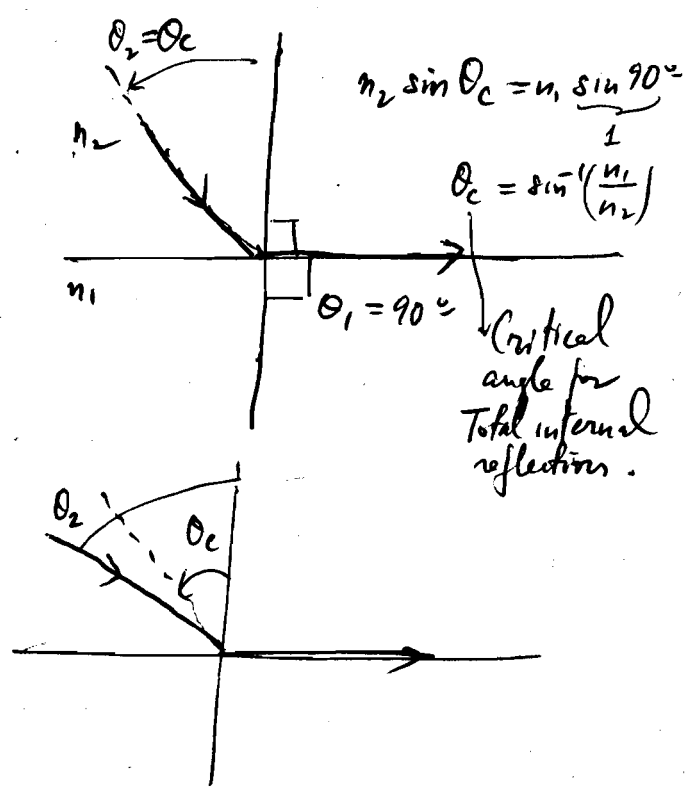 θ₂=θc
n₂ sin θc = n₁ sin 90°
1
n₂
θc = sin⁻¹(n₁/n₂)
n₁
θ₁ = 90°
Critical
angle for
Total internal
reflection.
θ₂
θc